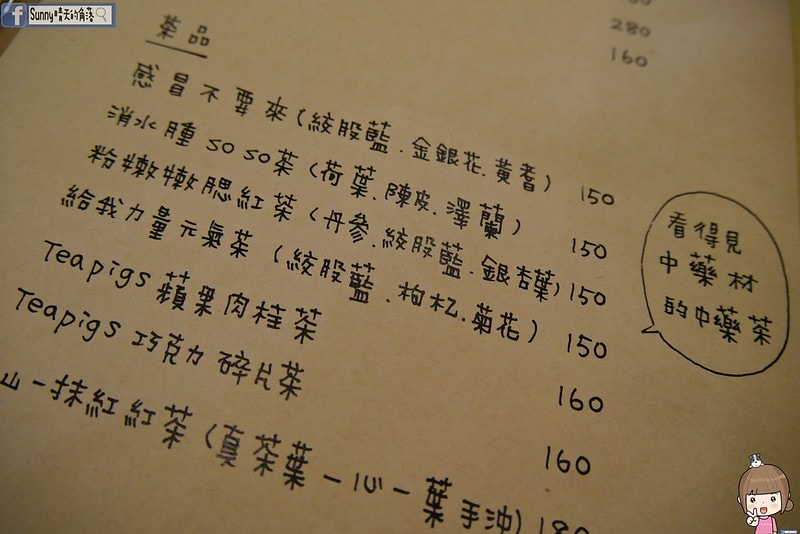 Sunny晴天的角落
280
160
茶品
感冒不要來(絞股藍.金銀花.黃耆) 150
消水腫 so so茶(荷葉.陳皮.澤蘭) 150
粉嫩嫩腮紅茶(丹參.絞股藍.銀杏葉) 150
給我力量元氣茶(絞股藍.枸杞.菊花) 150
Teapigs 蘋果肉桂茶 160
Teapigs 巧克力碎片茶 160
山一抹紅紅茶(真茶葉一心一葉手沖) 180
看得見
中藥材
的中藥茶